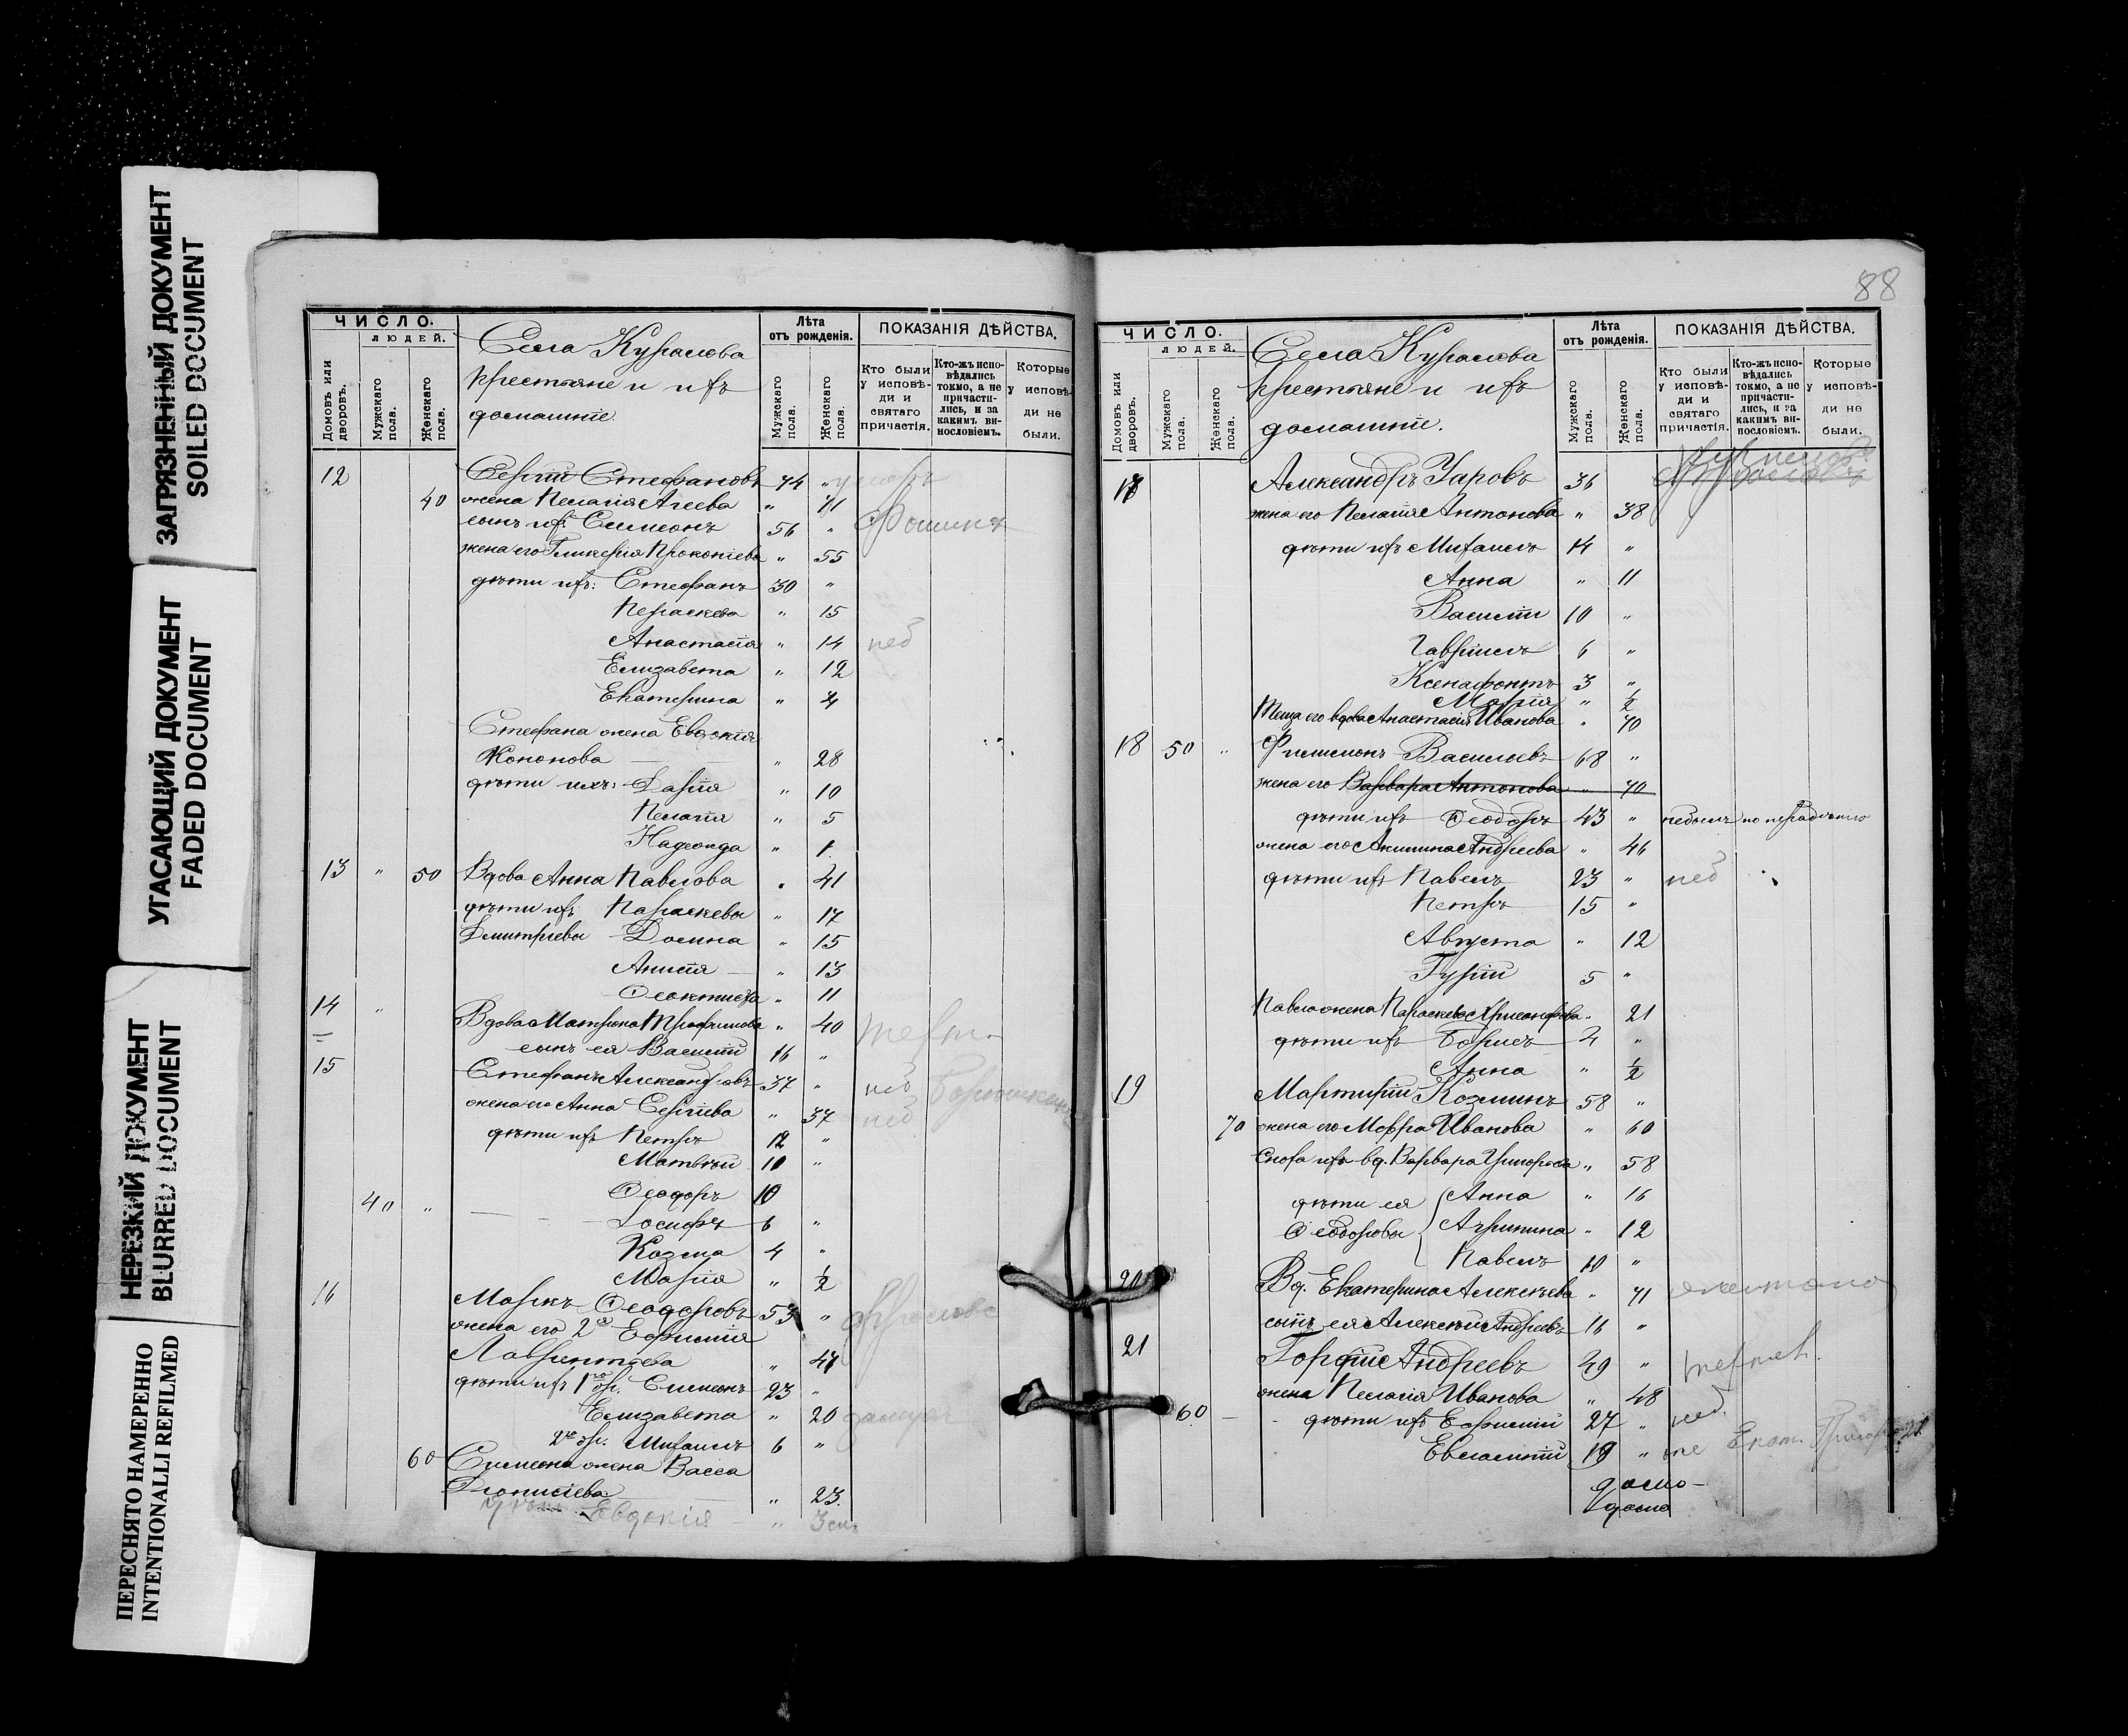 ЗАГРЯЗНЕННЫЙ ДОКУМЕНТ
SOILED DOCUMENT
УГАСАЮЩИЙ ДОКУМЕНТ
FADED DOCUMENT
НЕРЕЗКИЙ ДОКУМЕНТ
BLURRED DOCUMENT
ПЕРЕСНЯТО НАМЕРЕННО
INTENTIONALLI REFILMED
ЧИСЛО.
людей.
Домовъ или дворовъ.
Мужскаго пола.
Женскаго пола.
Села Куралова
крестьяне и ихъ
домашніе.
Лѣта
отъ рожденія.
Мужскаго пола.
Женскаго пола.
ПОКАЗАНІЯ ДѢЙСТВА.
Кто были у исповѣди и святаго причастія.
Кто-жъ исповѣдались токмо, а не причастились, и за какимъ винословіемъ.
Которые у исповѣди не были.
12 Сергій Стефановъ 74 " умеръ
40 жена Пелагія Агеева " 71
сынъ ихъ Симеонъ 56 " Фошинъ
жена его Гликерія Прокопіева " 55
дѣти ихъ: Стефанъ 30 "
Пераскева " 15
Анастасія " 14 неб
Елизавета " 12
Екатерина " 4
Стефана жена Евдокія
Кононова " 28
дѣти ихъ: Дарія " 10
Пелагія " 5
Надежда " 1
13 " 50 Вдова Анна Павлова " 41
дѣти ихъ Параскева " 17
Дмитріевы Домна " 15
Анисія " 13
Ѳеоктиста " 11
14 " Вдова Матрона Трофимова " 40
сынъ ея Василій 16 "
15 Стефанъ Александровъ 37 " неб
жена его Анна Сергіева " 37 неб
дѣти ихъ Петръ 12 "
Матвѣй 10 "
40 " Ѳеодоръ 10
Іосифъ 6 "
Козма 4 "
Марія " ½
16 Маркъ Ѳеодоровъ 53 " Фролова
жена его 2я Ефимія
Лаврентіева " 47
дѣти ихъ 1го бр. Симеонъ 23 "
Елизавета " 20 замуж
2го бр. Михаилъ 6 "
60 Симеона жена Васса
Діонисіева " 23.
Евдокія "
88
ЧИСЛО.
людей.
Домовъ или дворовъ.
Мужскаго пола.
Женскаго пола.
Села Куралова
крестьяне и ихъ
домашніе.
Лѣта
отъ рожденія.
Мужскаго пола.
Женскаго пола.
ПОКАЗАНІЯ ДѢЙСТВА.
Кто были у исповѣди и святаго причастія.
Кто-жъ исповѣдались токмо, а не причастились, и за какимъ винословіемъ.
Которые у исповѣди не были.
17 Александръ Уаровъ 36
жена его Пелагія Антонова " 38
дѣти ихъ Михаилъ 14 "
Анна " 11
Василій 10 "
Гавріилъ 6 "
Ксенафонтъ 3 "
Марія " ½
Теща его вдова Анастасія Иванова " 70
18 50 " Филимонъ Васильевъ 68 "
жена его Варвара Антонова " 70
дѣти ихъ Ѳеодоръ 43 " небылъ по нерадѣнію
жена его Акилина Андреева " 46
дѣти ихъ Павелъ 23 " неб
Петръ 15 "
Августа " 12
Гурій 5 "
Павла жена Параскева " 21
дѣти ихъ Борисъ 2 "
Анна " ½
19 Мартирій Козминъ 58 "
70 жена его Марѳа Иванова " 60
Сноха ихъ вд. Варвара Григорьева " 58
дѣти ея Анна " 16
Ѳеодоровы Агрипина " 12
Павелъ 10 "
20 Вд. Екатерина Алексѣева " 71
сынъ ея Алексѣй Андреевъ 16 "
21 Гордій Андреевъ 49 "
жена Пелагія Иванова " 48
60 дѣти ихъ Ефимій 27 " неб.
Евлампій 19 " Екат. 21